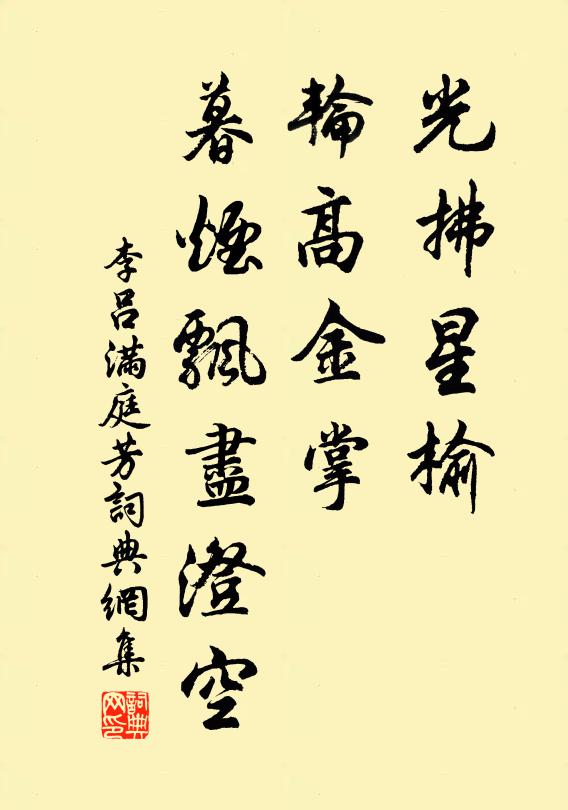 光拂星榆
輪高金掌
暮煙飄盡澄空
李呂滿庭芳詞典網集
詞典網印